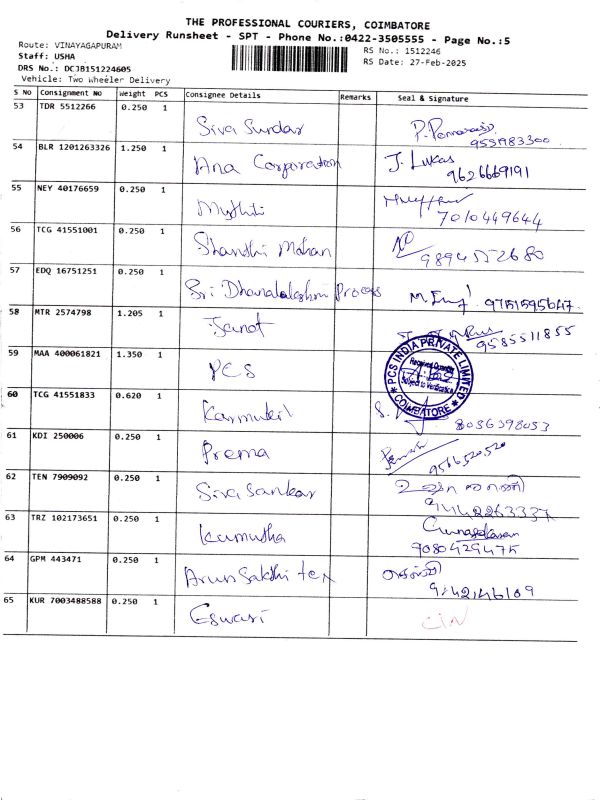 THE PROFESSIONAL COURIERS, COIMBATORE
Delivery Runsheet - SPT - Phone No.:0422-3505555 - Page No.:5
Route: VINAYAGAPURAM
RS No.: 1512246
Staff: USHA
RS Date: 27-Feb-2025
DRS No.: DCJB151224605
Vehicle: Two Wheeler Delivery
S No Consignment No Weight PCS Consignee Details Remarks Seal & Signature
53 TDR 5512266 0.250 1
Siva Sundar
54 BLR 1201263326 1.250 1
Ana Corporation J. Lukas
9626669191
55 NEY 40176659 0.250 1
Mythili
7010449644
56 TCG 41551001 0.250 1
Shanthi Mohan
57 EDQ 16751251 0.250 1
Sri Dhanalakshmi Process
58 MTR 2574798 1.205 1
Janot
9585511855
59 MAA 400061821 1.350 1
PCS
PCS INDIA PRIVATE LIMITED
Subject to Verification
COIMBATORE
60 TCG 41551833 0.620 1
8056398053
61 KDI 250006 0.250 1
Prema
62 TEN 7909092 0.250 1
Siva Sankar
9442263337
63 TRZ 102173651 0.250 1
Kumutha Gunasekaran
9080429475
64 GPM 443471 0.250 1
Arun Sakthi tex
65 KUR 7003488588 0.250 1
Eswari